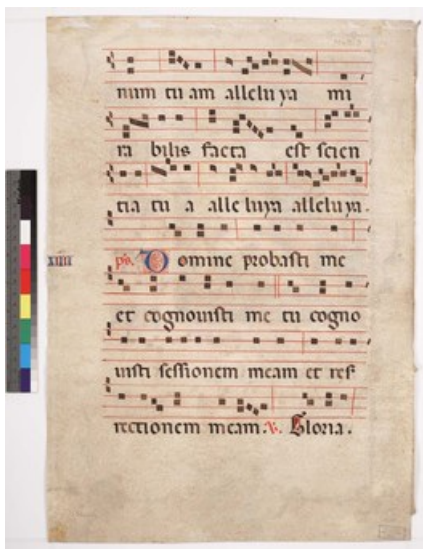 num tu am allelu ya mi
ra bilis facta est scien
tia tu a alle luya alleluya.
xiiii ps. Domine probasti me
et cognouisti me tu cogno
uisti sessionem meam et res
rectionem meam. v. Gloria.